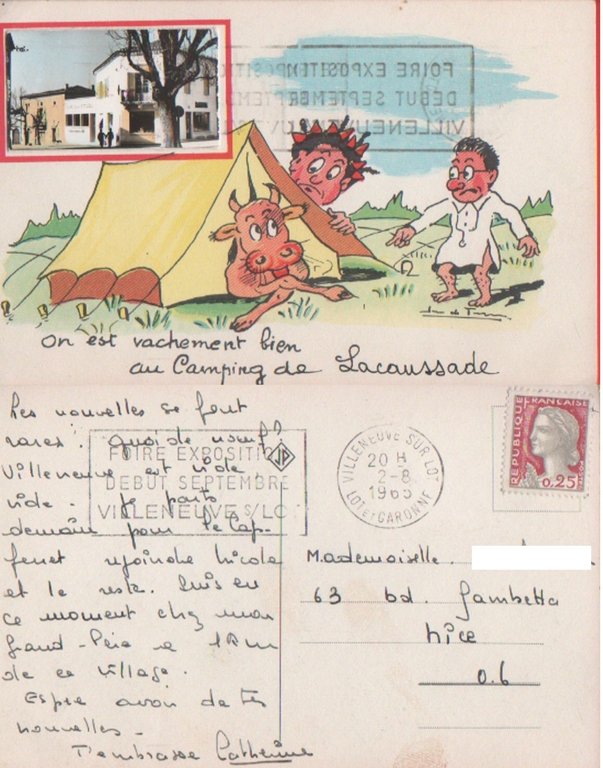 FOIRE EXPOSITION
DEBUT SEPTEMBRE
VILLENEUVE
On est vachement bien
au Camping de Lacaussade
Les nouvelles se font
rares. Quoi de neuf?
Villeneuve est vide,
vide. Je pars
demain pour le Cap-
ferret rejoindre Nicole
et le reste. Suis en
ce moment chez mon
grand-Père a
de ce village.
Espre avoir de tes
nouvelles -
T'embrasse Catherine
FOIRE EXPOSITION
DEBUT SEPTEMBRE
VILLENEUVE S/LOT
VILLENEUVE SUR LOT
20 H
2-8
1965
LOT ET GARONNE
REPUBLIQUE FRANÇAISE
POSTES
0,25
Mademoiselle.
63 bd. Gambetta
Nice
06